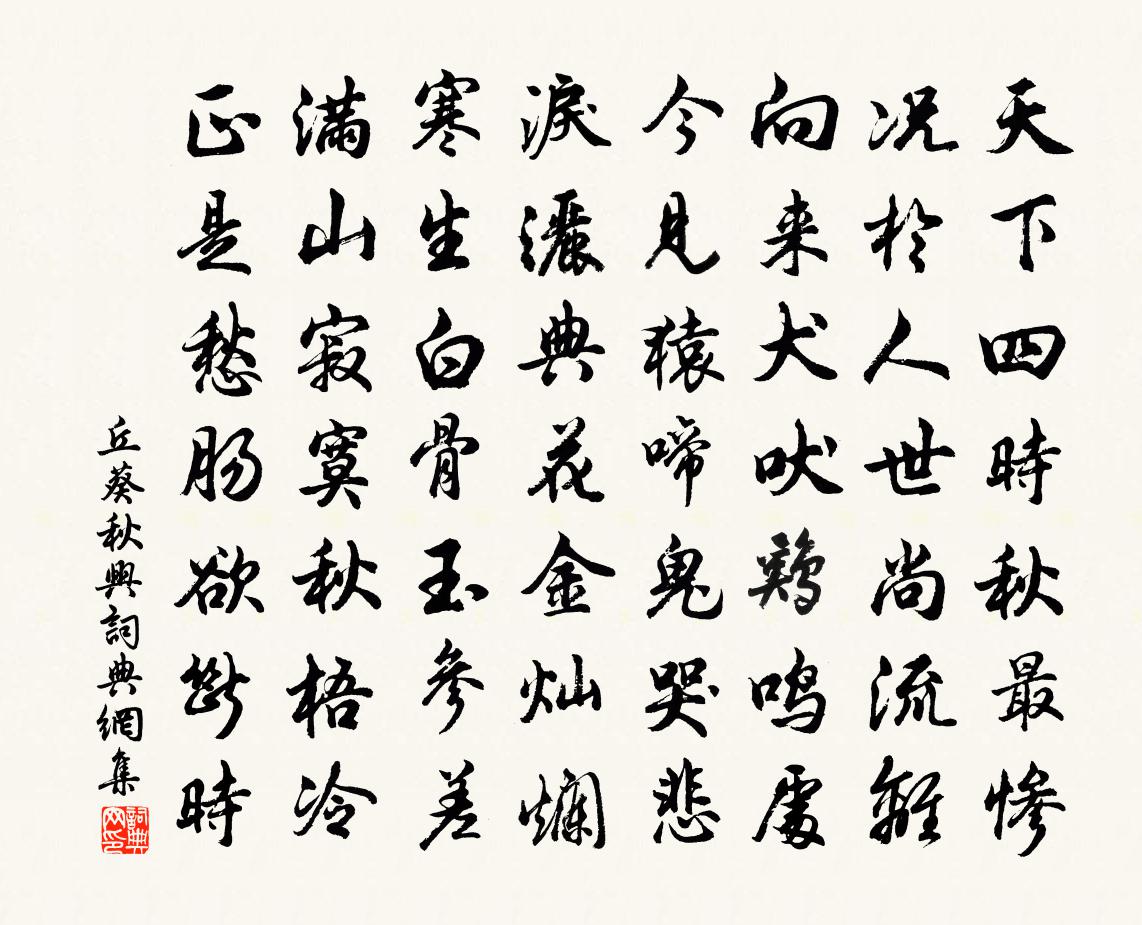 天下四時秋最慘
况於人世尚流離
向来犬吠鷄鳴處
今見猿啼鬼哭悲
淚灑典花金灿爛
寒生白骨玉參差
滿山寂寞秋梧冷
正是愁肠欲斷時
丘葵秋興詞典網集
詞典网印